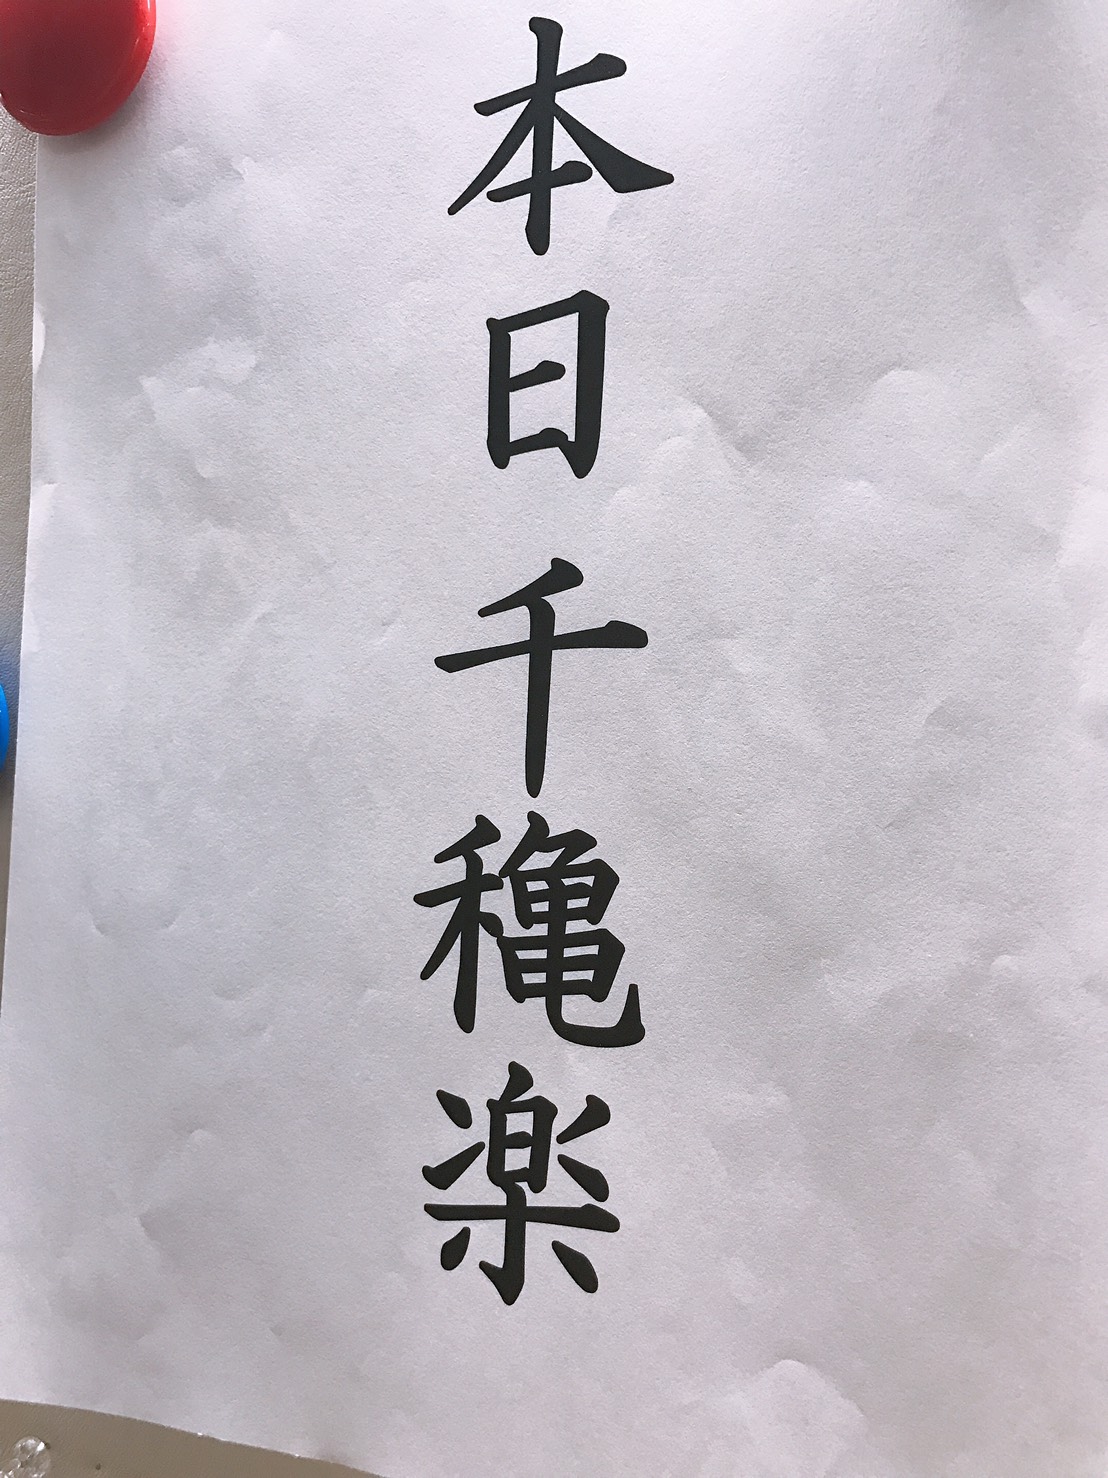 本日 千穐楽